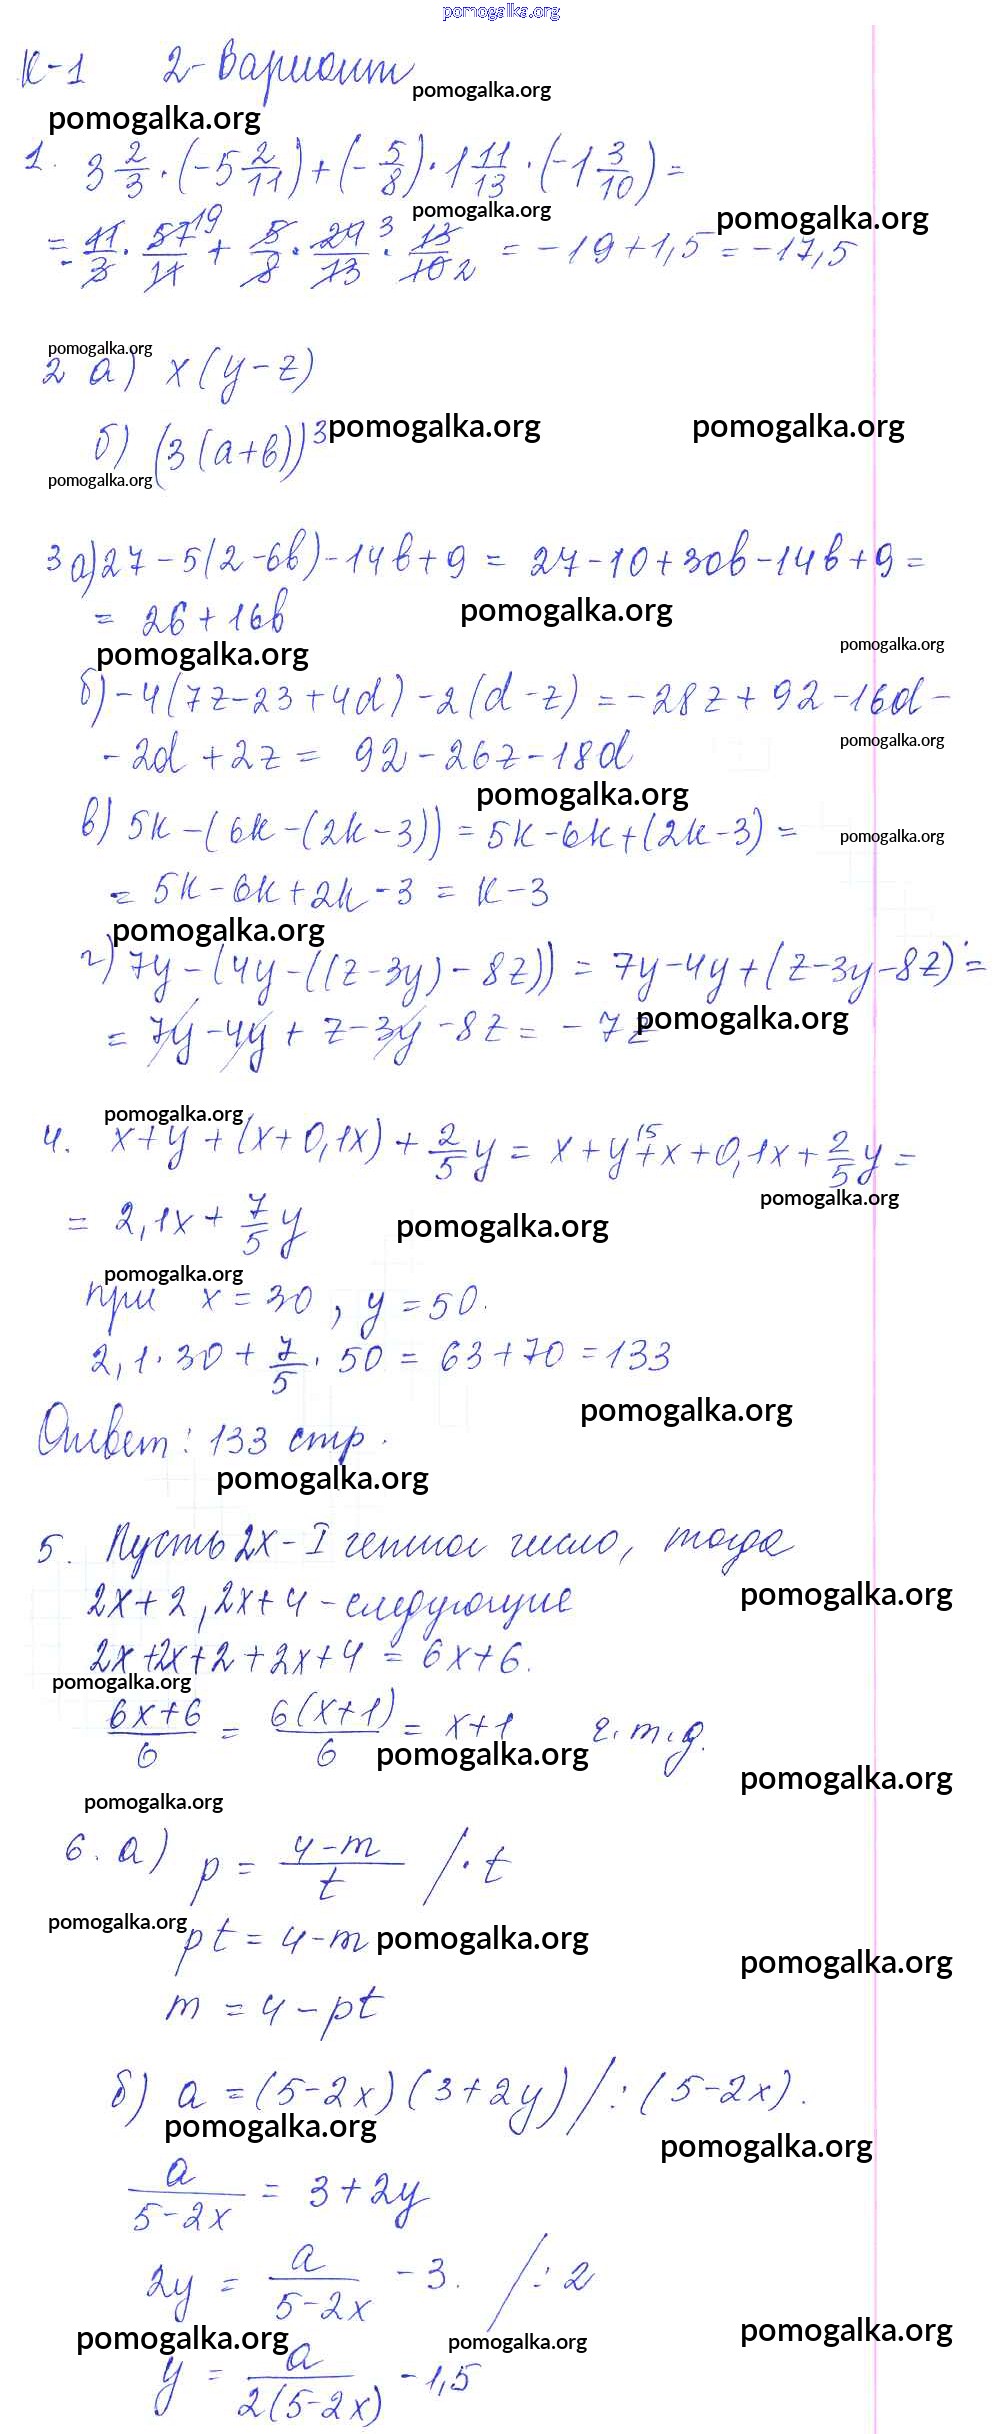 pomogalka.org
К-1 2-Вариант
pomogalka.org
pomogalka.org
1. 3 2/3 · (-5 2/11) + (-5/8) · 1 11/13 · (-1 3/10) =
pomogalka.org pomogalka.org
= - 11/3 · 57 19/11 + 5/8 · 24 3/13 · 13/10 2 = -19 + 1,5 = -17,5
pomogalka.org
2 а) x(y-z)
б) (3(a+b))³
pomogalka.org pomogalka.org
pomogalka.org
3 а) 27 - 5(2-6b) - 14b + 9 = 27 - 10 + 30b - 14b + 9 =
= 26 + 16b
pomogalka.org
pomogalka.org pomogalka.org
б) -4(7z - 23 + 4d) - 2(d - z) = -28z + 92 - 16d -
- 2d + 2z = 92 - 26z - 18d
pomogalka.org
pomogalka.org
в) 5k - (6k - (2k - 3)) = 5k - 6k + (2k - 3) =
pomogalka.org
= 5k - 6k + 2k - 3 = k - 3
pomogalka.org
г) 7y - (4y - ((z - 3y) - 8z)) = 7y - 4y + (z - 3y - 8z) =
= 7y - 4y + z - 3y - 8z = - 7z
pomogalka.org
pomogalka.org
4. x + y + (x + 0,1x) + 2/5 y = x + y + x + 0,1x + 2/5 y =
pomogalka.org
= 2,1x + 7/5 y
pomogalka.org
pomogalka.org
при x = 30, y = 50.
2,1 · 30 + 7/5 · 50 = 63 + 70 = 133
pomogalka.org
Ответ: 133 стр.
pomogalka.org
5. Пусть 2x - I четное число, тогда
pomogalka.org
2x + 2, 2x + 4 - следующие
2x + 2x + 2 + 2x + 4 = 6x + 6.
pomogalka.org
6x+6/6 = 6(x+1)/6 = x + 1 ч.т.д.
pomogalka.org
pomogalka.org
pomogalka.org
6. а) p = 4-m/t /· t
pomogalka.org
pt = 4 - m
pomogalka.org
pomogalka.org
m = 4 - pt
б) a = (5-2x)(3+2y) /: (5-2x).
pomogalka.org
pomogalka.org
a/5-2x = 3 + 2y
2y = a/5-2x - 3. /: 2
pomogalka.org pomogalka.org pomogalka.org
y = a/2(5-2x) - 1,5